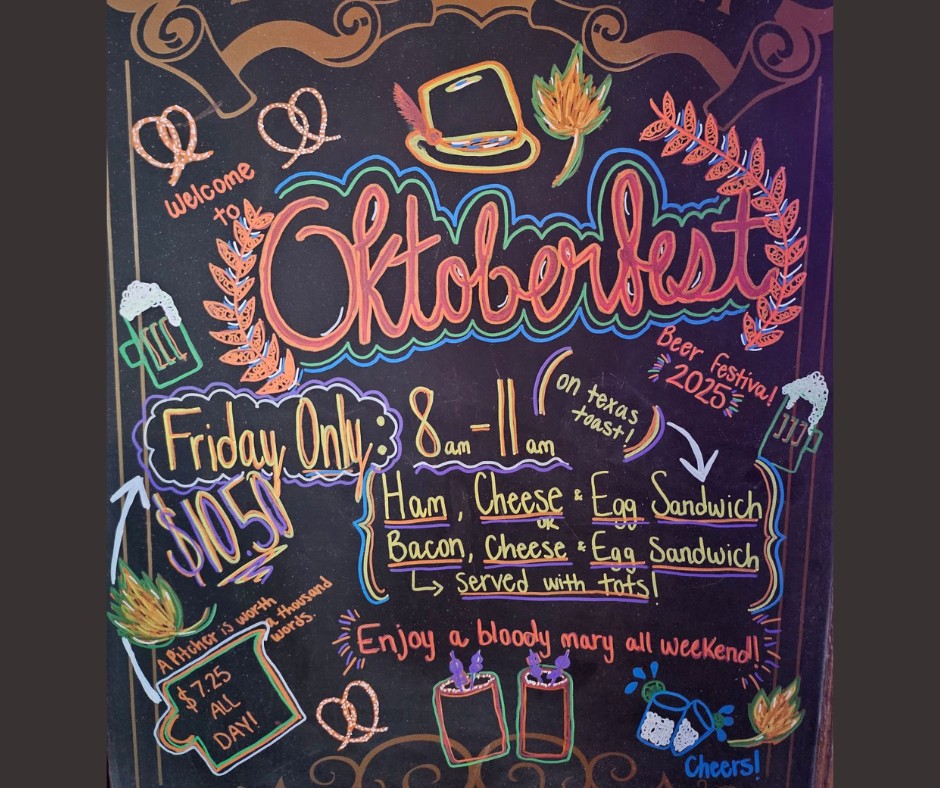 Welcome
to
Oktoberfest
Beer Festival
2025
Friday Only:
8am-11am
on texas
toast!
$10.50
Ham, Cheese & Egg Sandwich
OR
Bacon, Cheese & Egg Sandwich
↳ Served with tots!
A Pitcher is worth
a thousand
words.
$7.25
ALL
DAY!
Enjoy a bloody mary all weekend!
Cheers!